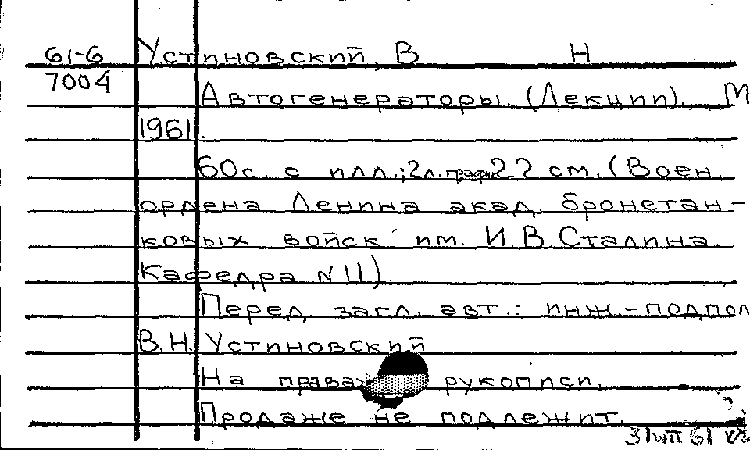 61-6 Устиновский, В Н
7004
Автогенераторы. (Лекции). М
1961.
60с. с илл.; 2л. граф. 22 см. (Воен.
ордена Ленина акад. бронетан-
ковых войск им. И.В. Сталина.
Кафедра N 11)
Перед загл. авт.: инж.-подпол
В.Н. Устиновский
На правах рукописи.
Продаже не подлежит.
61